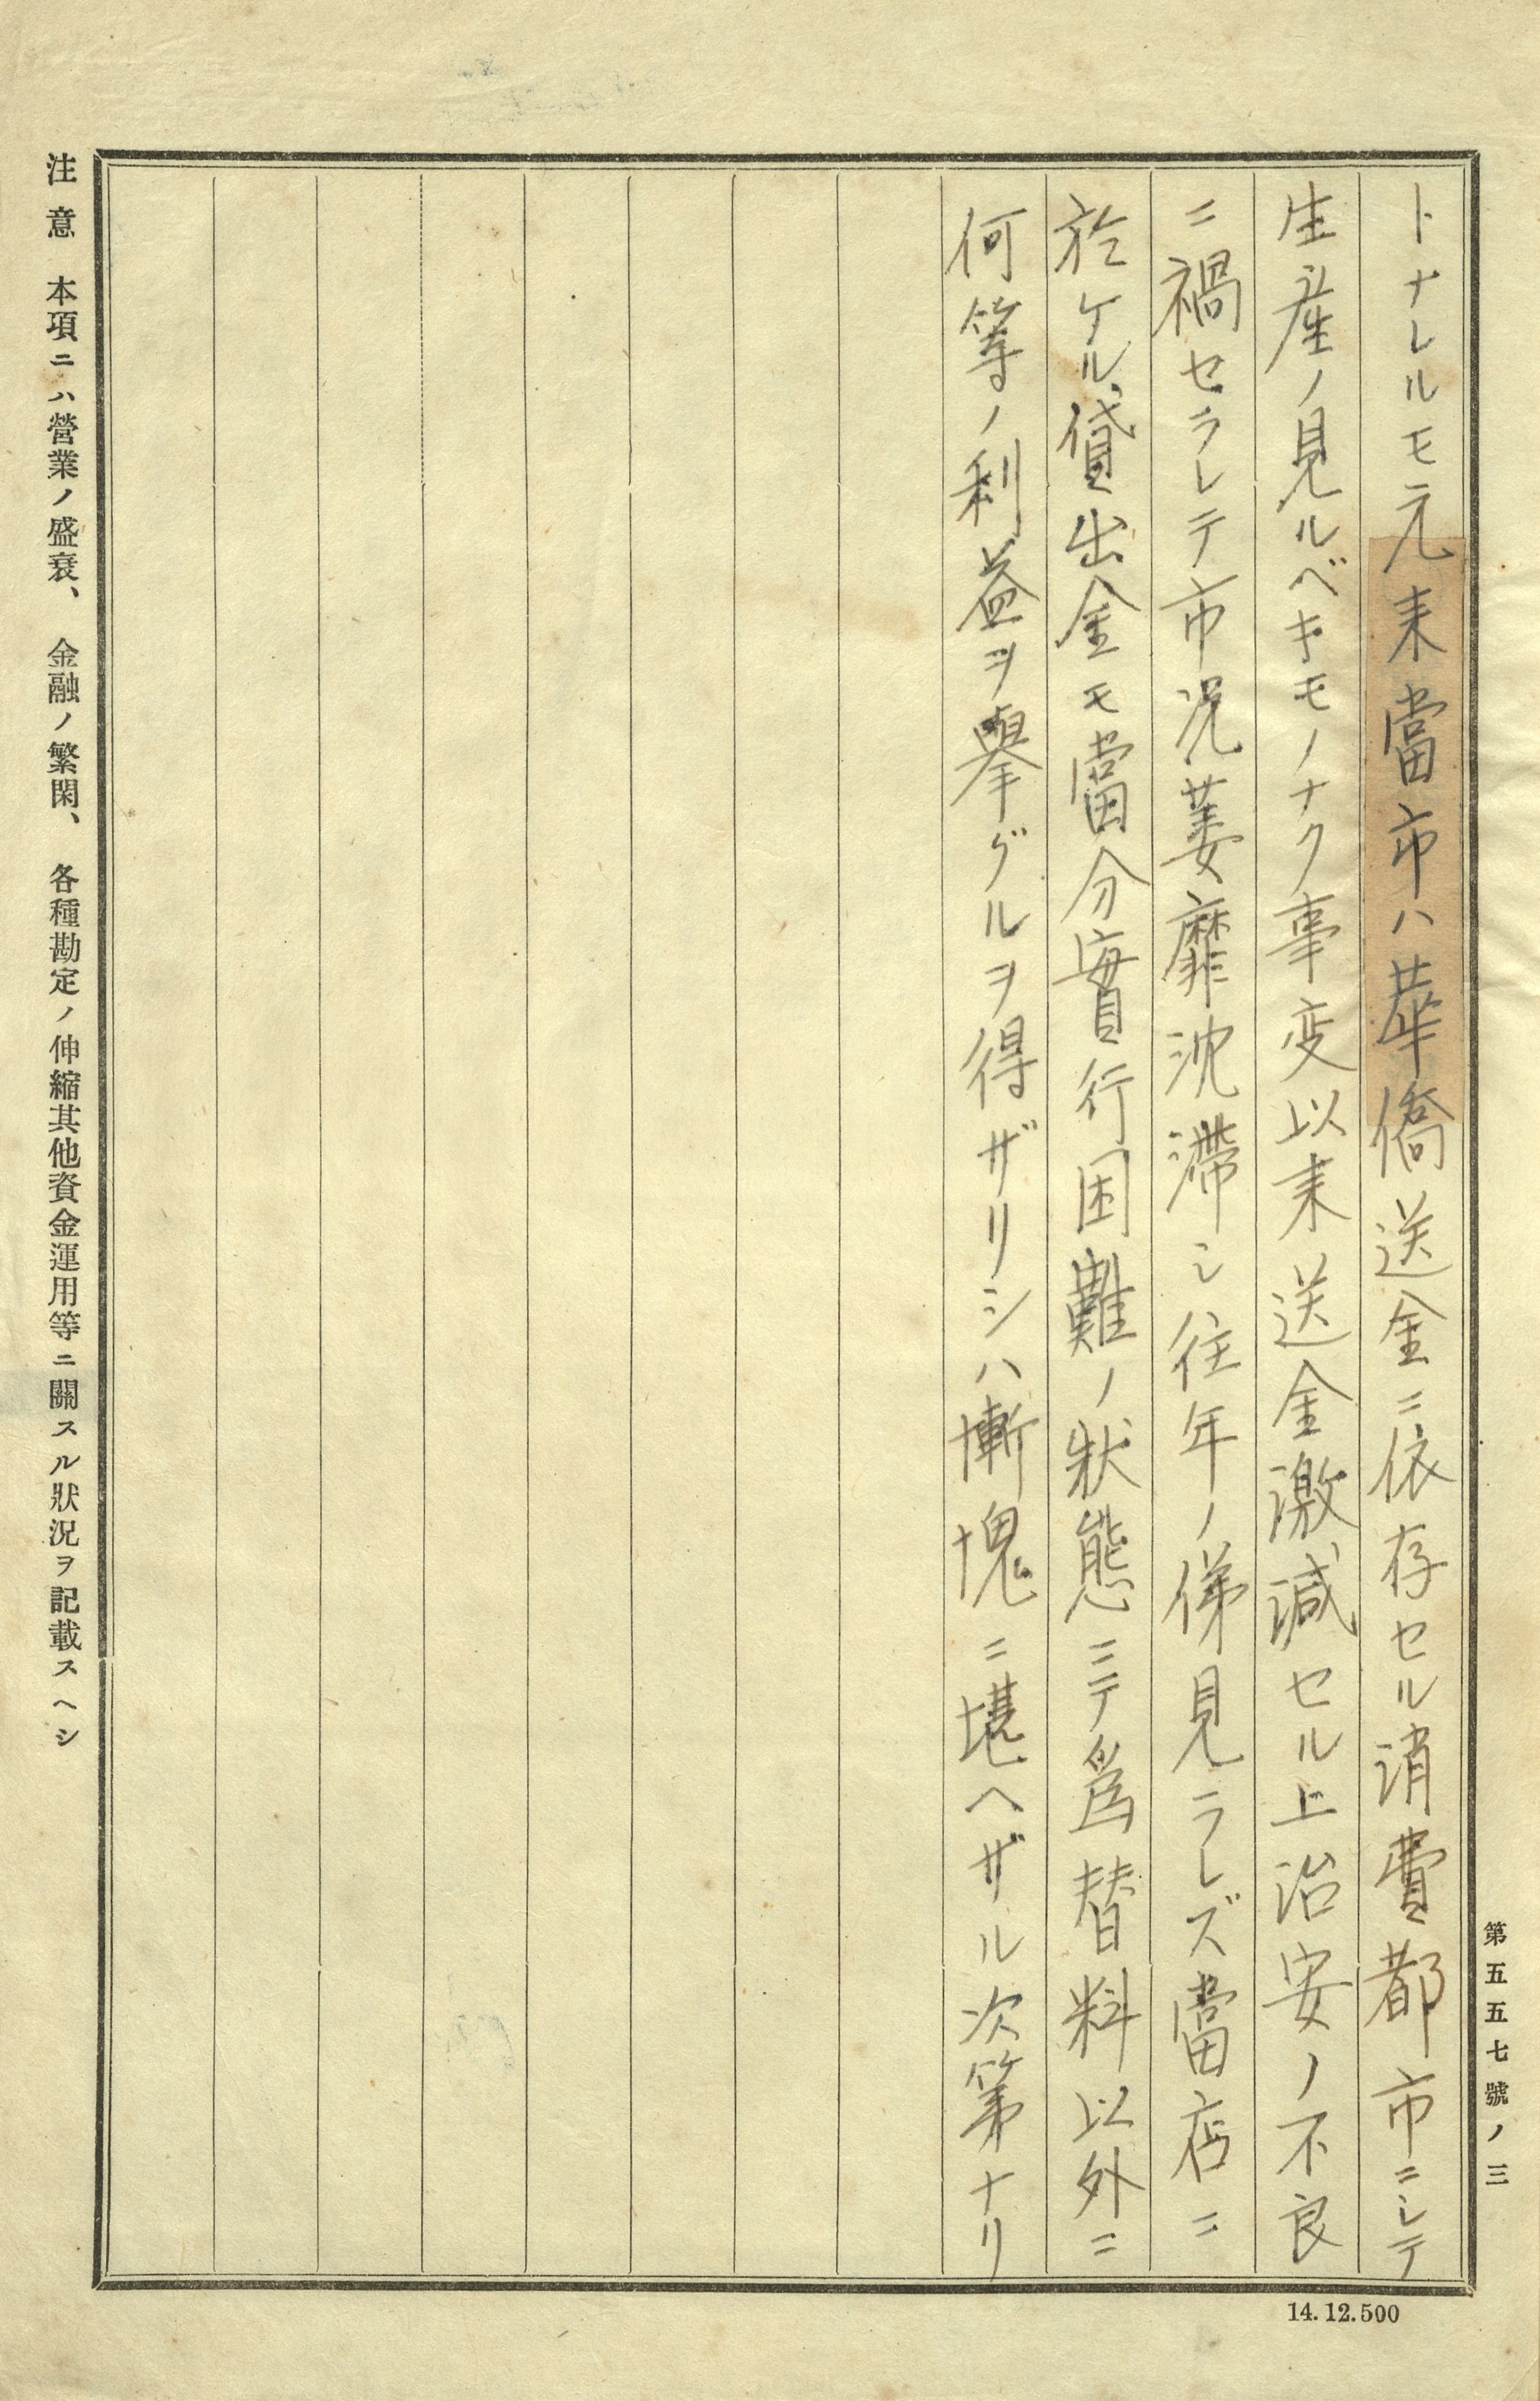 第五五七號ノ三
トナレルモ元来當市ハ華僑送金ニ依存セル消費都市ニシテ
生産ノ見ルベキモノナク事変以来送金激減セル上治安ノ不良
ニ禍セラレテ市況萎靡沈滞シ往年ノ俤見ラレズ當店ニ
於ケル、貸出金モ當分實行困難ノ狀態ニテ爲替料以外ニ
何等ノ利益ヲ擧グルヲ得ザリシハ慚愧ニ堪ヘザル次第ナリ
注意 本項ニハ營業ノ盛衰、金融ノ繁閑、各種勘定ノ伸縮其他資金運用等ニ關スル狀況ヲ記載スヘシ
14.12.500